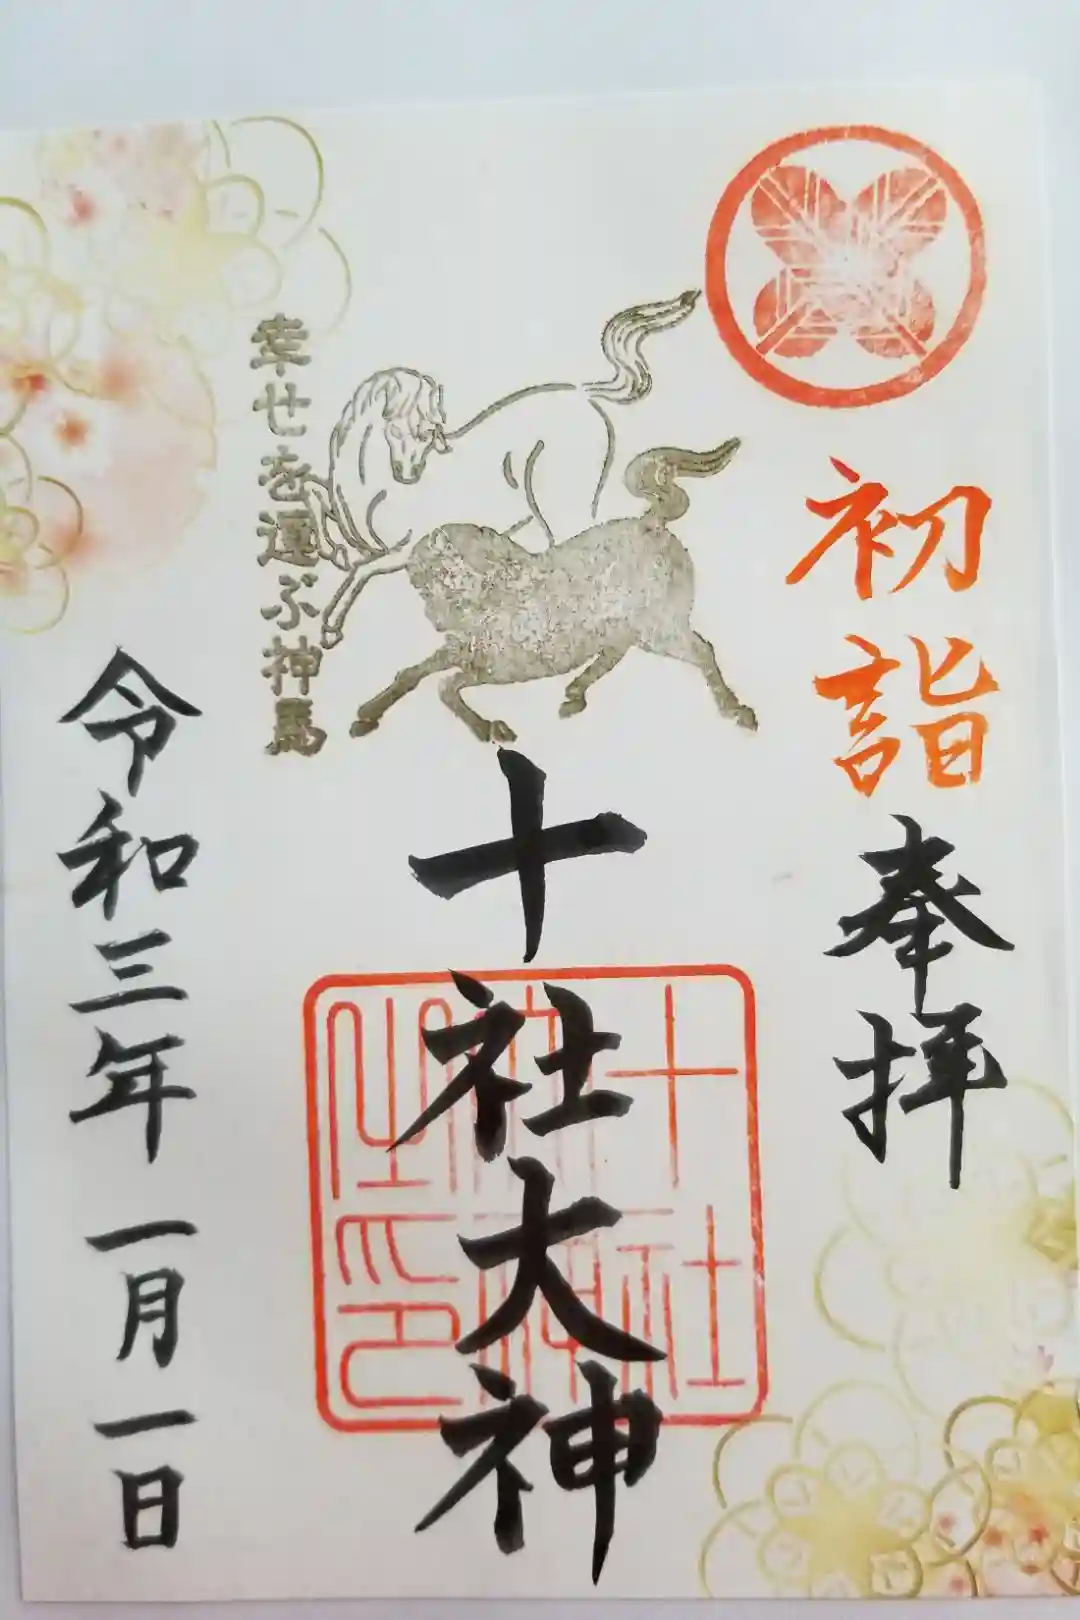 初詣
奉拝
幸せを運ぶ神馬
十社大神
十社大神之印
令和三年一月一日